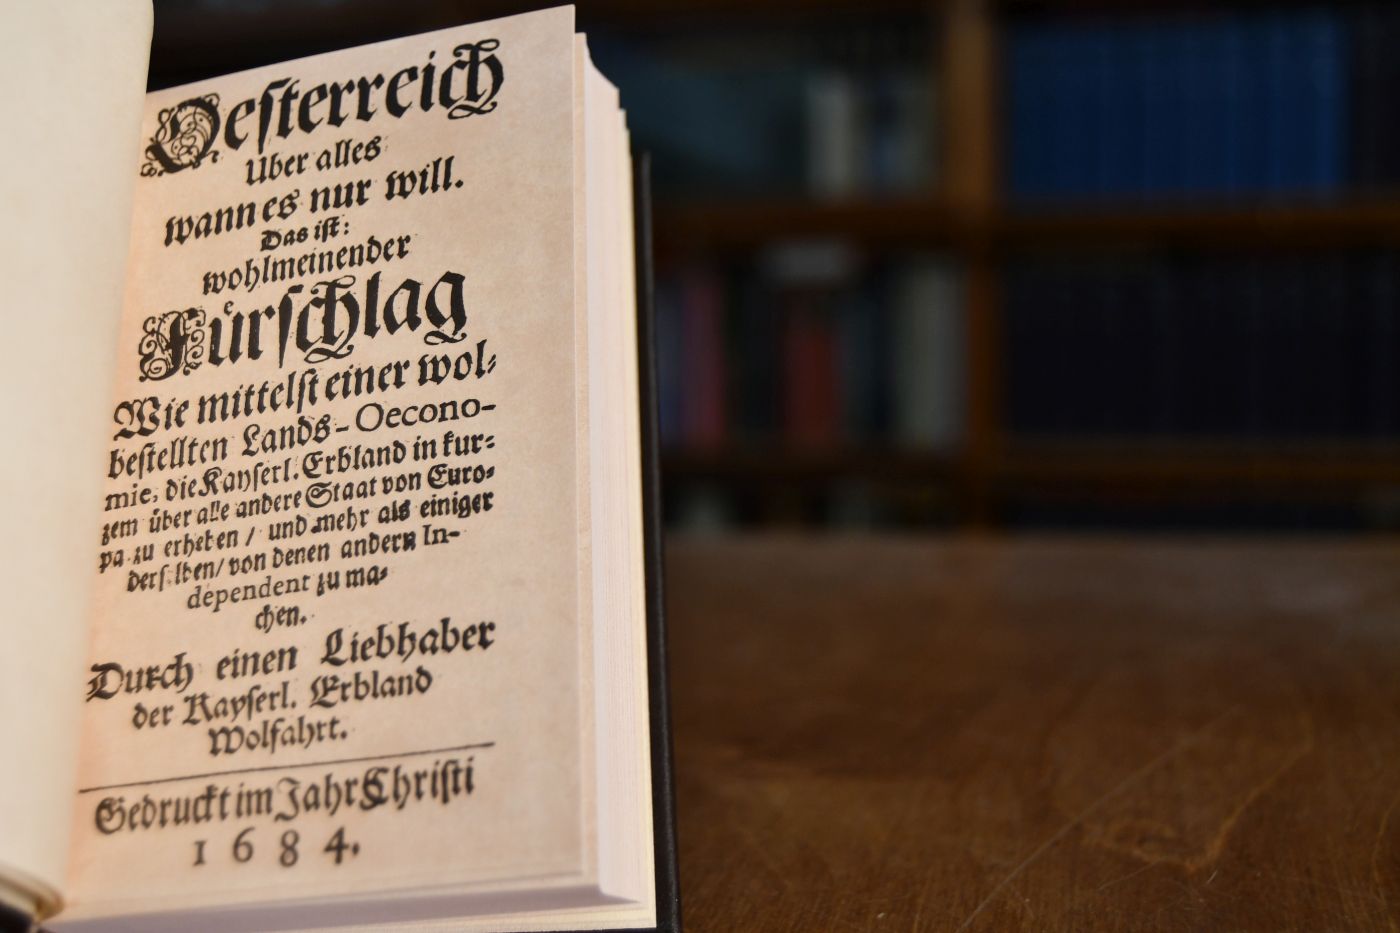 Oesterreich
Uber alles
wann es nur will.
Das ist:
wohlmeinender
Fuͤrschlag
Wie mittelst einer wol⸗
bestellten Lands-Oecono-
mie, die Kayserl. Erbland in kur⸗
zem über alle andere Staat von Euro⸗
pa zu erheben / und mehr als einiger
derselben / von denen andern In-
dependent zu ma⸗
chen.
Durch einen Liebhaber
der Kayserl. Erbland
Wolfahrt.
Gedruckt im Jahr Christi
1684.